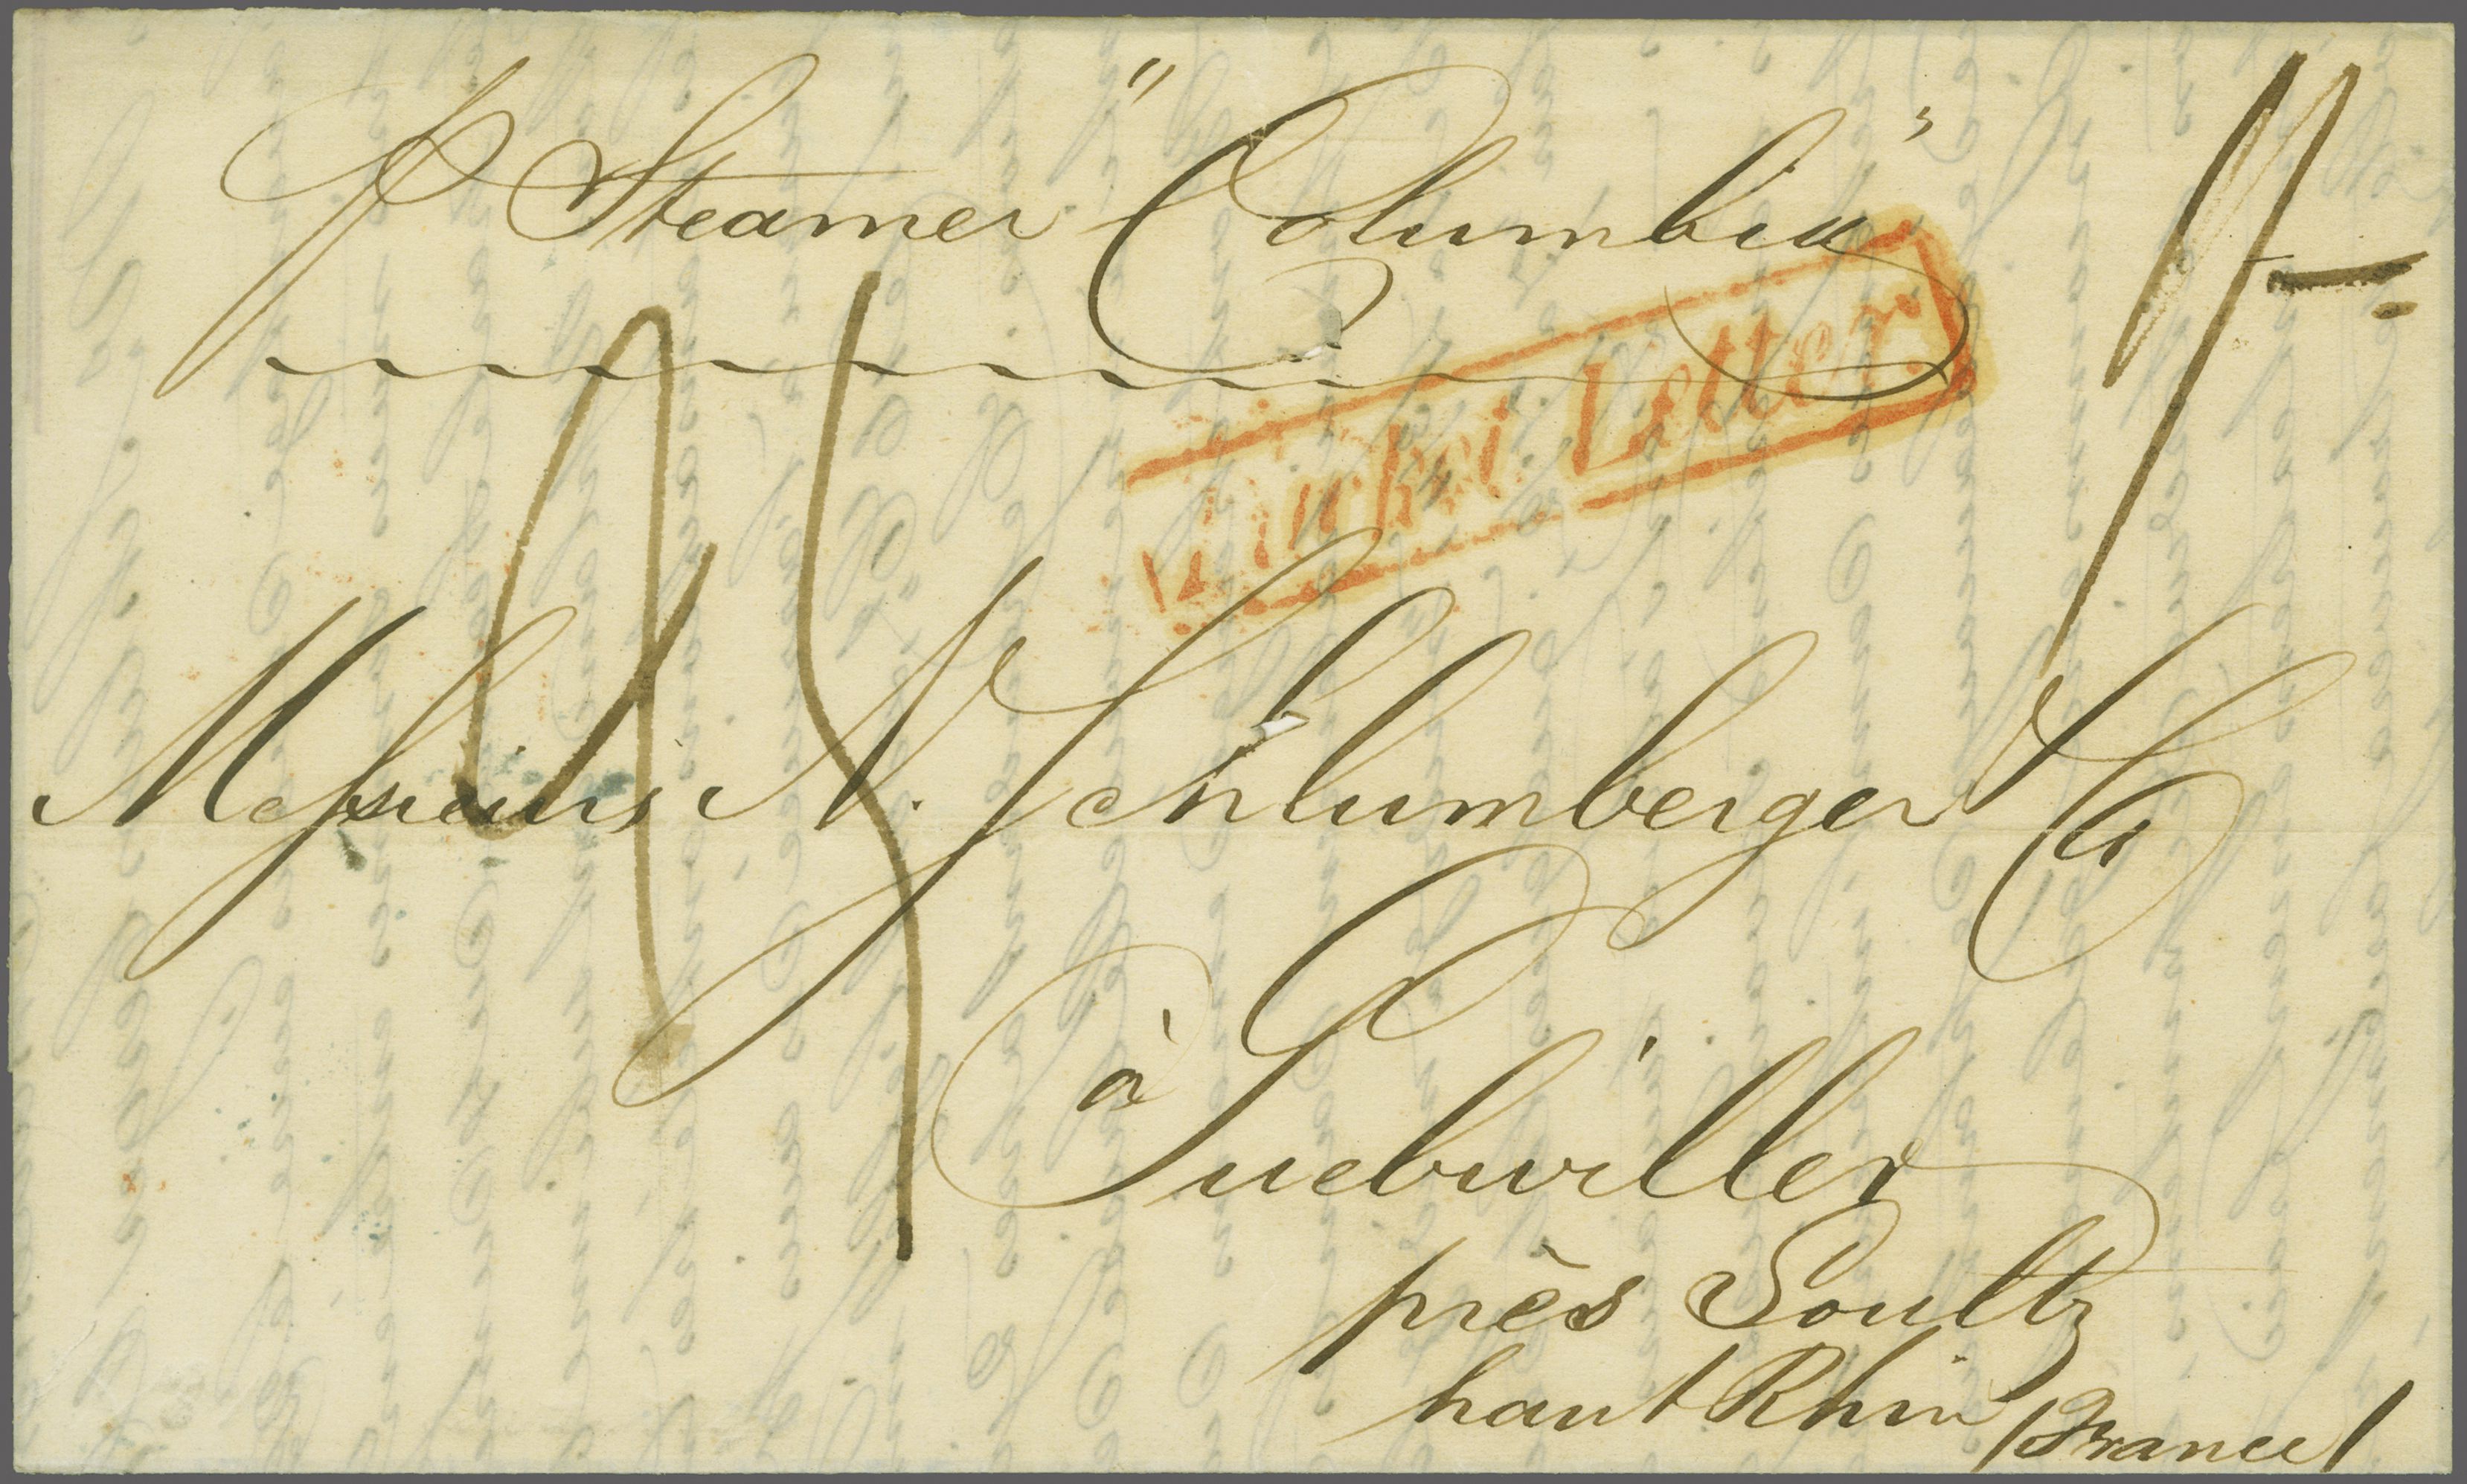 p Steamer "Columbia"
Packet Letter
Messieurs N. Schlumberger & Co
à Guebwiller
près Soultz
haut Rhin /France/